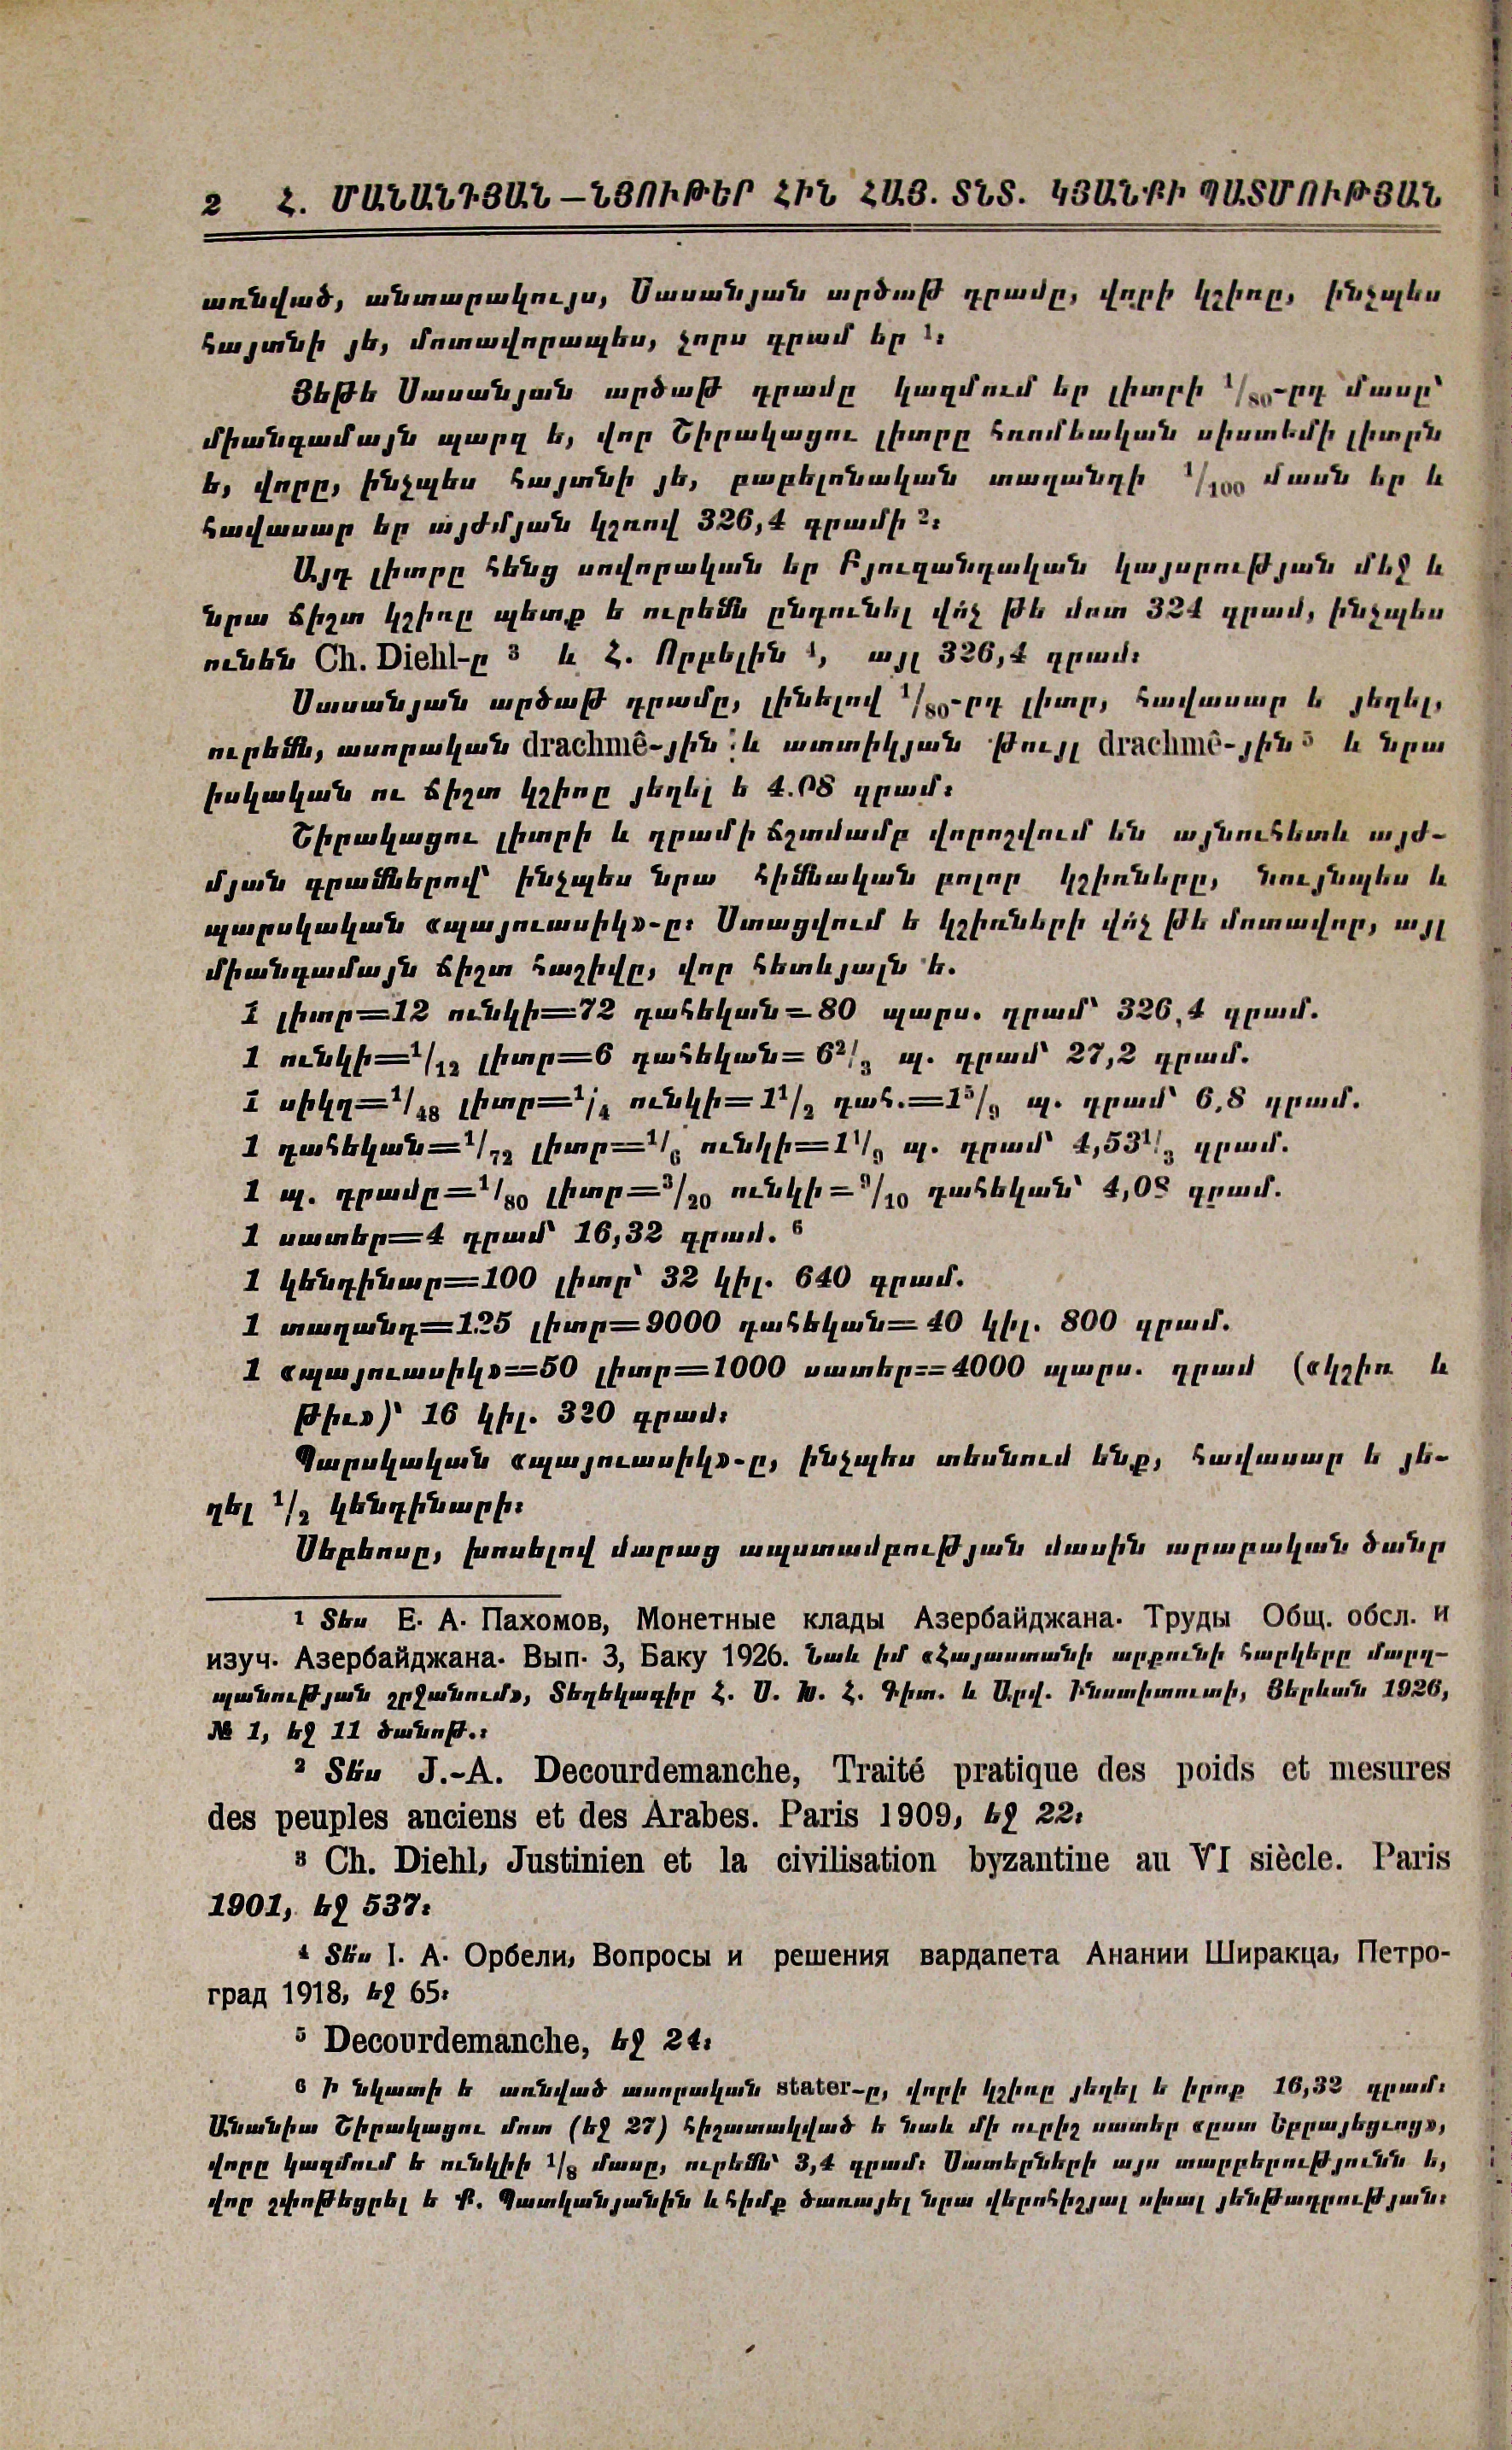 2 Հ. ՄԱՆԱՆԴՅԱՆ — ՆՅՈՒԹԵՐ ՀԻՆ ՀԱՅ. ՏՆՏ. ԿՅԱՆՔԻ ՊԱՏՄՈՒԹՅԱՆ
առնված, անտարակույս, Սասանյան արծաթ դրամը, վորի կշիռը, ինչպես
հայտնի յե, մոտավորապես, չորս գրամ եր ¹։
Յեթե Սասանյան արծաթ դրամը կազմում եր լիտրի ¹/₈₀-րդ մասը՝
միանգամայն պարզ ե, վոր Շիրակացու լիտրը հռոմեական սիստեմի լիտրն
ե, վորը, ինչպես հայտնի յե, բաբելոնական տաղանդի ¹/₁₀₀ մասն եր և
հավասար եր այժմյան կշռով 326,4 գրամի ²։
Այդ լիտրը հենց սովորական եր Բյուզանդական կայսրության մեջ և
նրա ճիշտ կշիռը պետք ե ուրեմն ընդունել վո՛չ թե մոտ 324 գրամ, ինչպես
ունեն Ch. Diehl-ը ³ և Հ. Որբելին ⁴, այլ 326,4 գրամ։
Սասանյան արծաթ դրամը, լինելով ¹/₈₀-րդ լիտր, հավասար ե յեղել,
ուրեմն, ասորական drachmê-յին և ատտիկյան թույլ drachmê-յին ⁵ և նրա
իսկական ու ճիշտ կշիռը յեղել ե 4.08 գրամ։
Շիրակացու լիտրի և դրամի ճշտմամբ վորոշվում են այնուհետև այժ-
մյան գրամներով՝ ինչպես նրա հիմնական բոլոր կշիռները, նույնպես և
պարսկական «պայուասիկ»-ը։ Ստացվում ե կշիռների վո՛չ թե մոտավոր, այլ
միանգամայն ճիշտ հաշիվը, վոր հետևյալն ե.
1 լիտր=12 ունկի=72 դահեկան=80 պարս. դրամ՝ 326,4 գրամ.
1 ունկի=¹/₁₂ լիտր=6 դահեկան=6²/₃ պ. դրամ՝ 27,2 գրամ.
1 սիկղ=¹/₄₈ լիտր=¹/₄ ունկի=1¹/₂ դահ.=1⁵/₉ պ. դրամ՝ 6,8 գրամ.
1 դահեկան=¹/₇₂ լիտր=¹/₆ ունկի=1¹/₉ պ. դրամ՝ 4,53¹/₃ գրամ.
1 պ. դրամը=¹/₈₀ լիտր=³/₂₀ ունկի=⁹/₁₀ դահեկան՝ 4,08 գրամ.
1 սատեր=4 դրամ՝ 16,32 գրամ. ⁶
1 կենդինար=100 լիտր՝ 32 կիլ. 640 գրամ.
1 տաղանդ=125 լիտր=9000 դահեկան=40 կիլ. 800 գրամ.
1 «պայուասիկ»=50 լիտր=1000 սատեր=4000 պարս. դրամ («կշիռ և
թիւ»)՝ 16 կիլ. 320 գրամ։
Պարսկական «պայուասիկ»-ը, ինչպես տեսնում ենք, հավասար ե յե-
ղել ¹/₂ կենդինարի։
Սեբեոսը, խոսելով մարաց ապստամբության մասին արաբական ծանր
¹ Տես Е. А. Пахомов, Монетные клады Азербайджана. Труды Общ. обсл. и
изуч. Азербайджана. Вып. 3, Баку 1926. Նաև իմ «Հայաստանի արքունի հարկերը մարզ-
պանության շրջանում», Տեղեկագիր Հ. Ս. Խ. Հ. Գիտ. և Արվ. Ինստիտուտի, Յերևան 1926,
№ 1, եջ 11 ծանոթ.։
² Տե՛ս J.-A. Decourdemanche, Traité pratique des poids et mesures
des peuples anciens et des Arabes. Paris 1909, եջ 22։
³ Ch. Diehl, Justinien et la civilisation byzantine au VI siècle. Paris
1901, եջ 537։
⁴ Տե՛ս I. А. Орбели, Вопросы и решения вардапета Анании Ширакца, Петро-
град 1918, եջ 65։
⁵ Decourdemanche, եջ 24։
⁶ Ի նկատի ե առնված ասորական stater-ը, վորի կշիռը յեղել ե իրոք 16,32 գրամ։
Անանիա Շիրակացու մոտ (եջ 27) հիշատակված ե նաև մի ուրիշ սատեր «ըստ Եբրայեցւոց»,
վորը կազմում ե ունկիի ¹/₈ մասը, ուրեմն՝ 3,4 գրամ։ Սատերների այս տարբերությունն ե,
վոր շփոթեցրել ե Ք. Պատկանյանին և հիմք ծառայել նրա վերոհիշյալ սխալ յենթադրության։